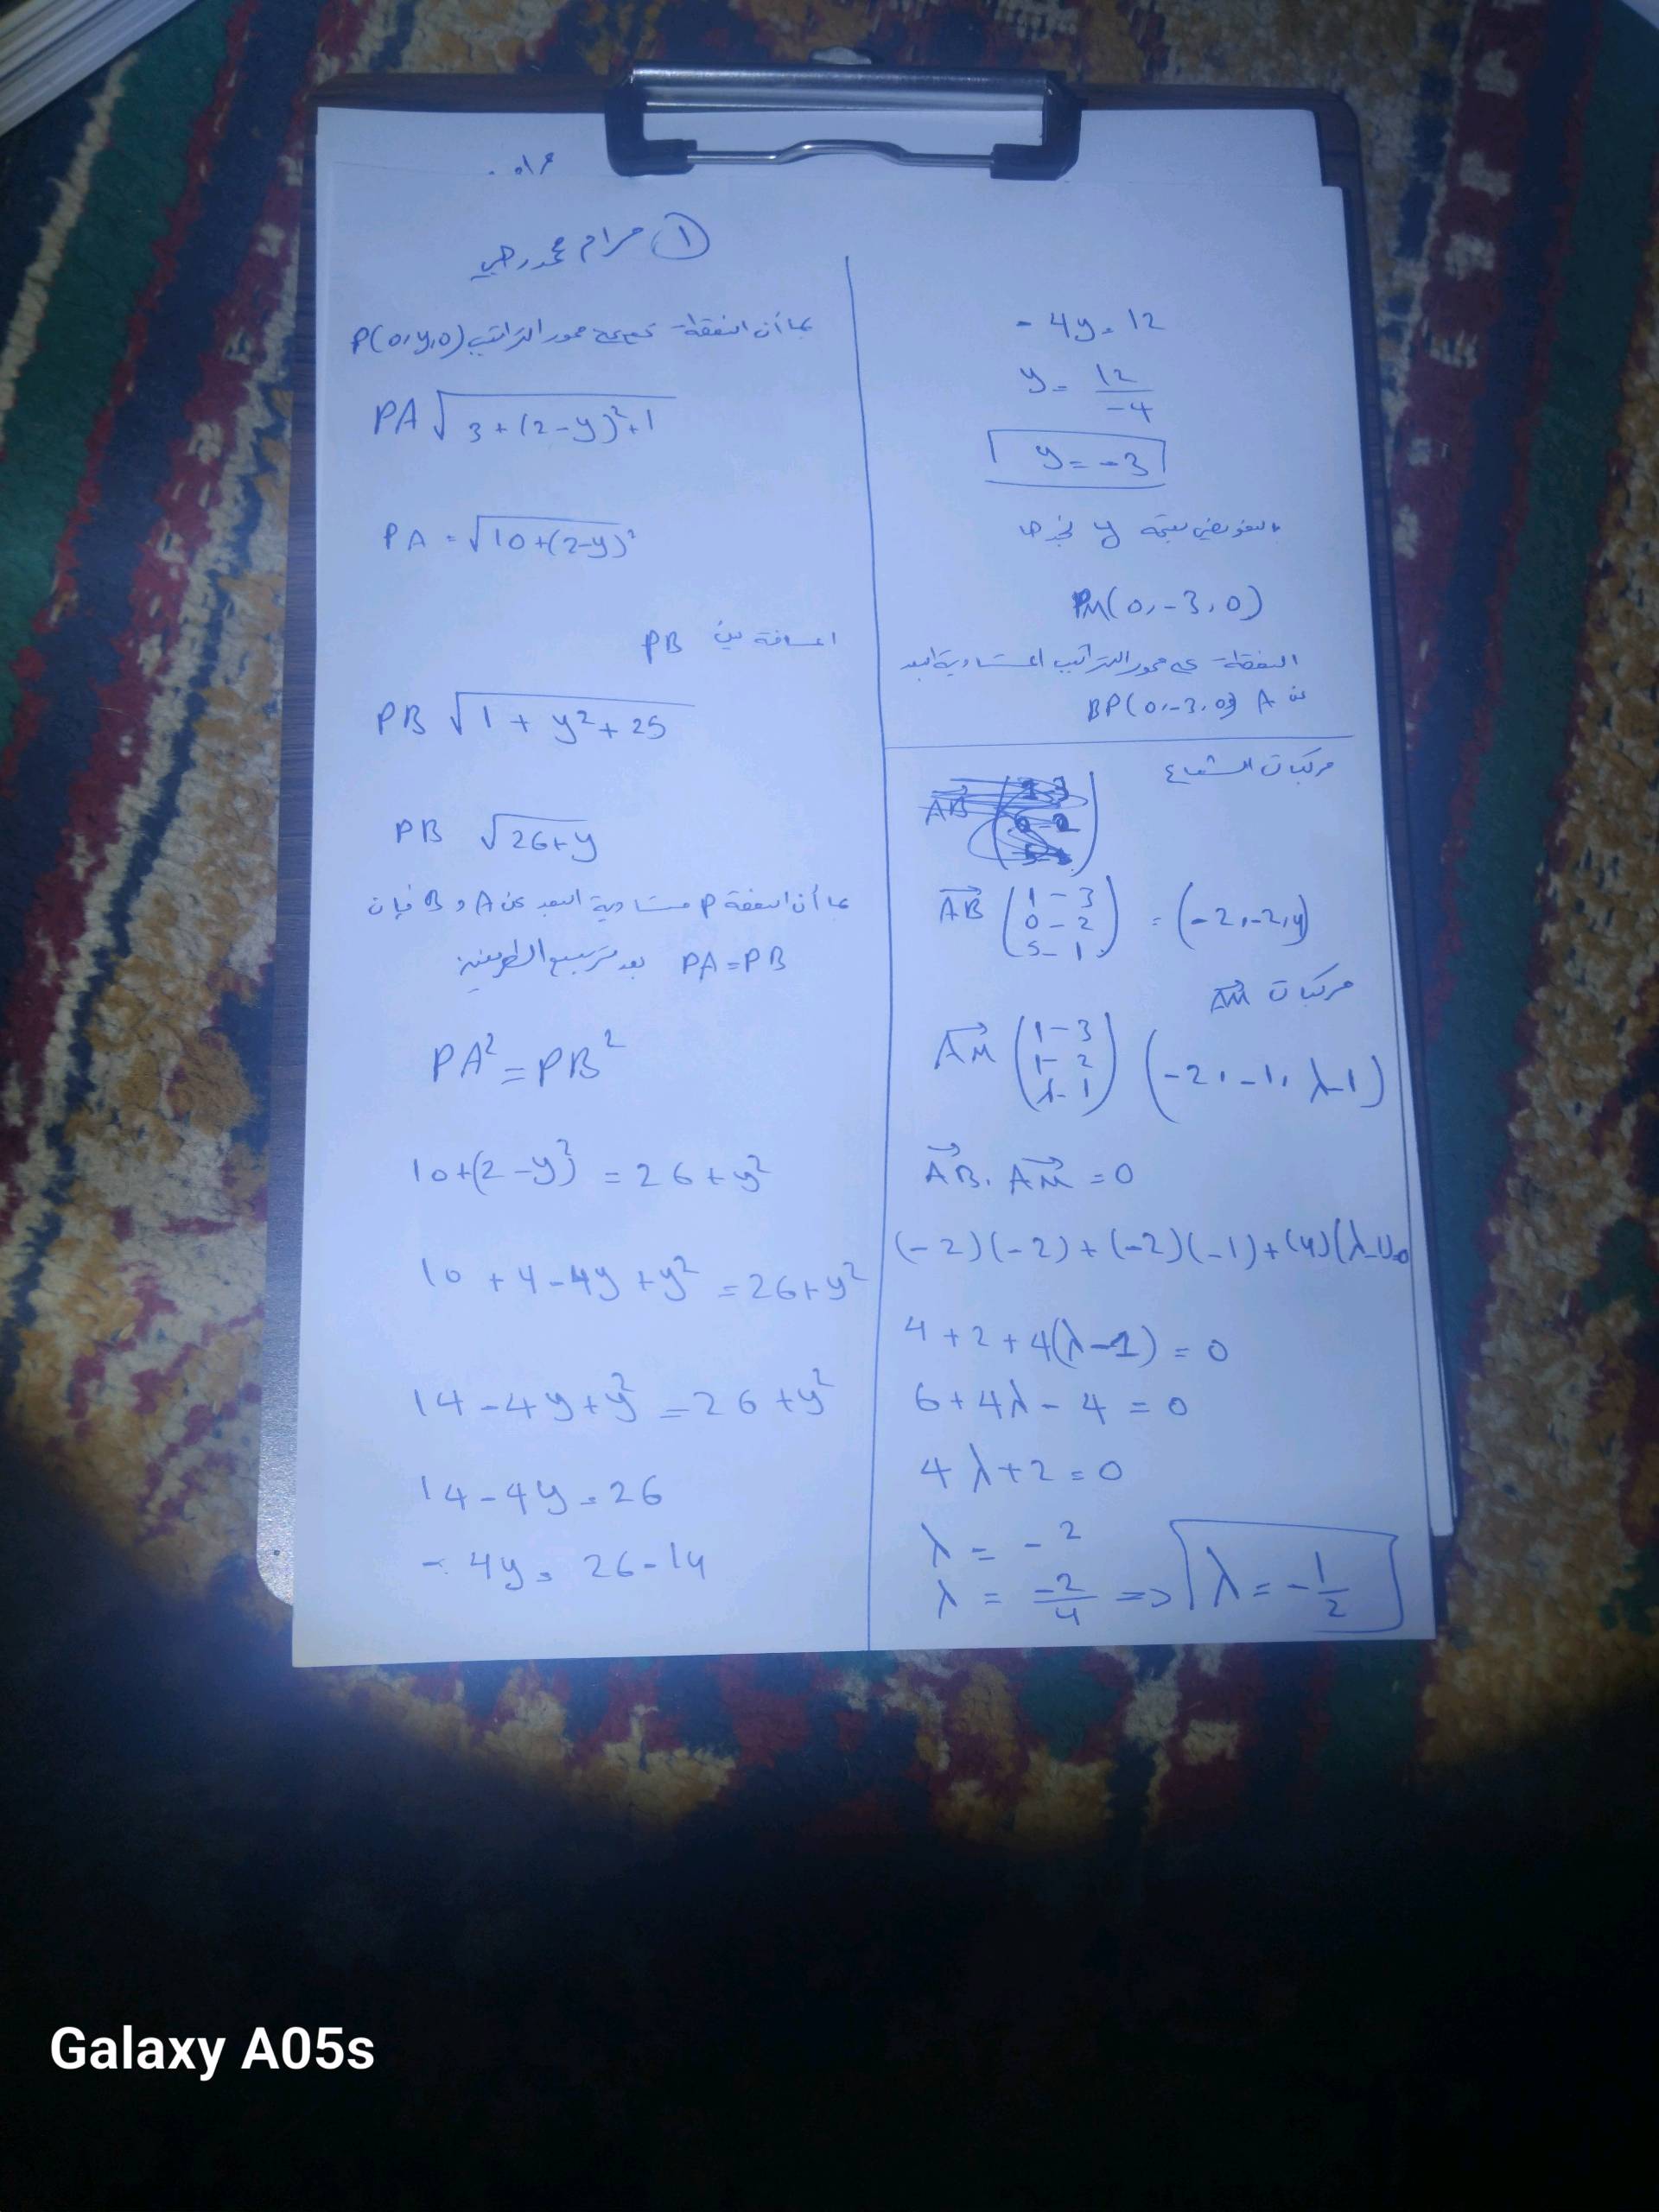 ① مرام محمد رجب
بما أن النقطة تقع على محور التراتيب P(0,y,0)
PA √3+(2-y)²+1
PA = √10+(2-y)²
المسافة بين PB
PB √1+y²+25
PB √26+y
بما أن النقطة P متساوية البعد عن A و B فإن
PA=PB بعد تربيع الطرفين
PA²=PB²
10+(2-y)² = 26+y²
10+4-4y+y² = 26+y²
14-4y+y² = 26+y²
14-4y = 26
-4y = 26-14
-4y = 12
y = 12/-4
y = -3
بالتعويض بقيمة y نجد
M(0,-3,0)
النقطة على محور التراتيب المتساوية البعد
عن A و BP(0,-3,0)
مركبات الشعاع
AB (1-3 0-2 5-1) = (-2,-2,4)
مركبات AM
AM (1-3 1-2 λ-1) (-2,-1,λ-1)
AB.AM = 0
(-2)(-2)+(-2)(-1)+(4)(λ-1)=0
4+2+4(λ-1) = 0
6+4λ-4 = 0
4λ+2 = 0
λ = -2
λ = -2/4 => λ = -1/2
Galaxy A05s